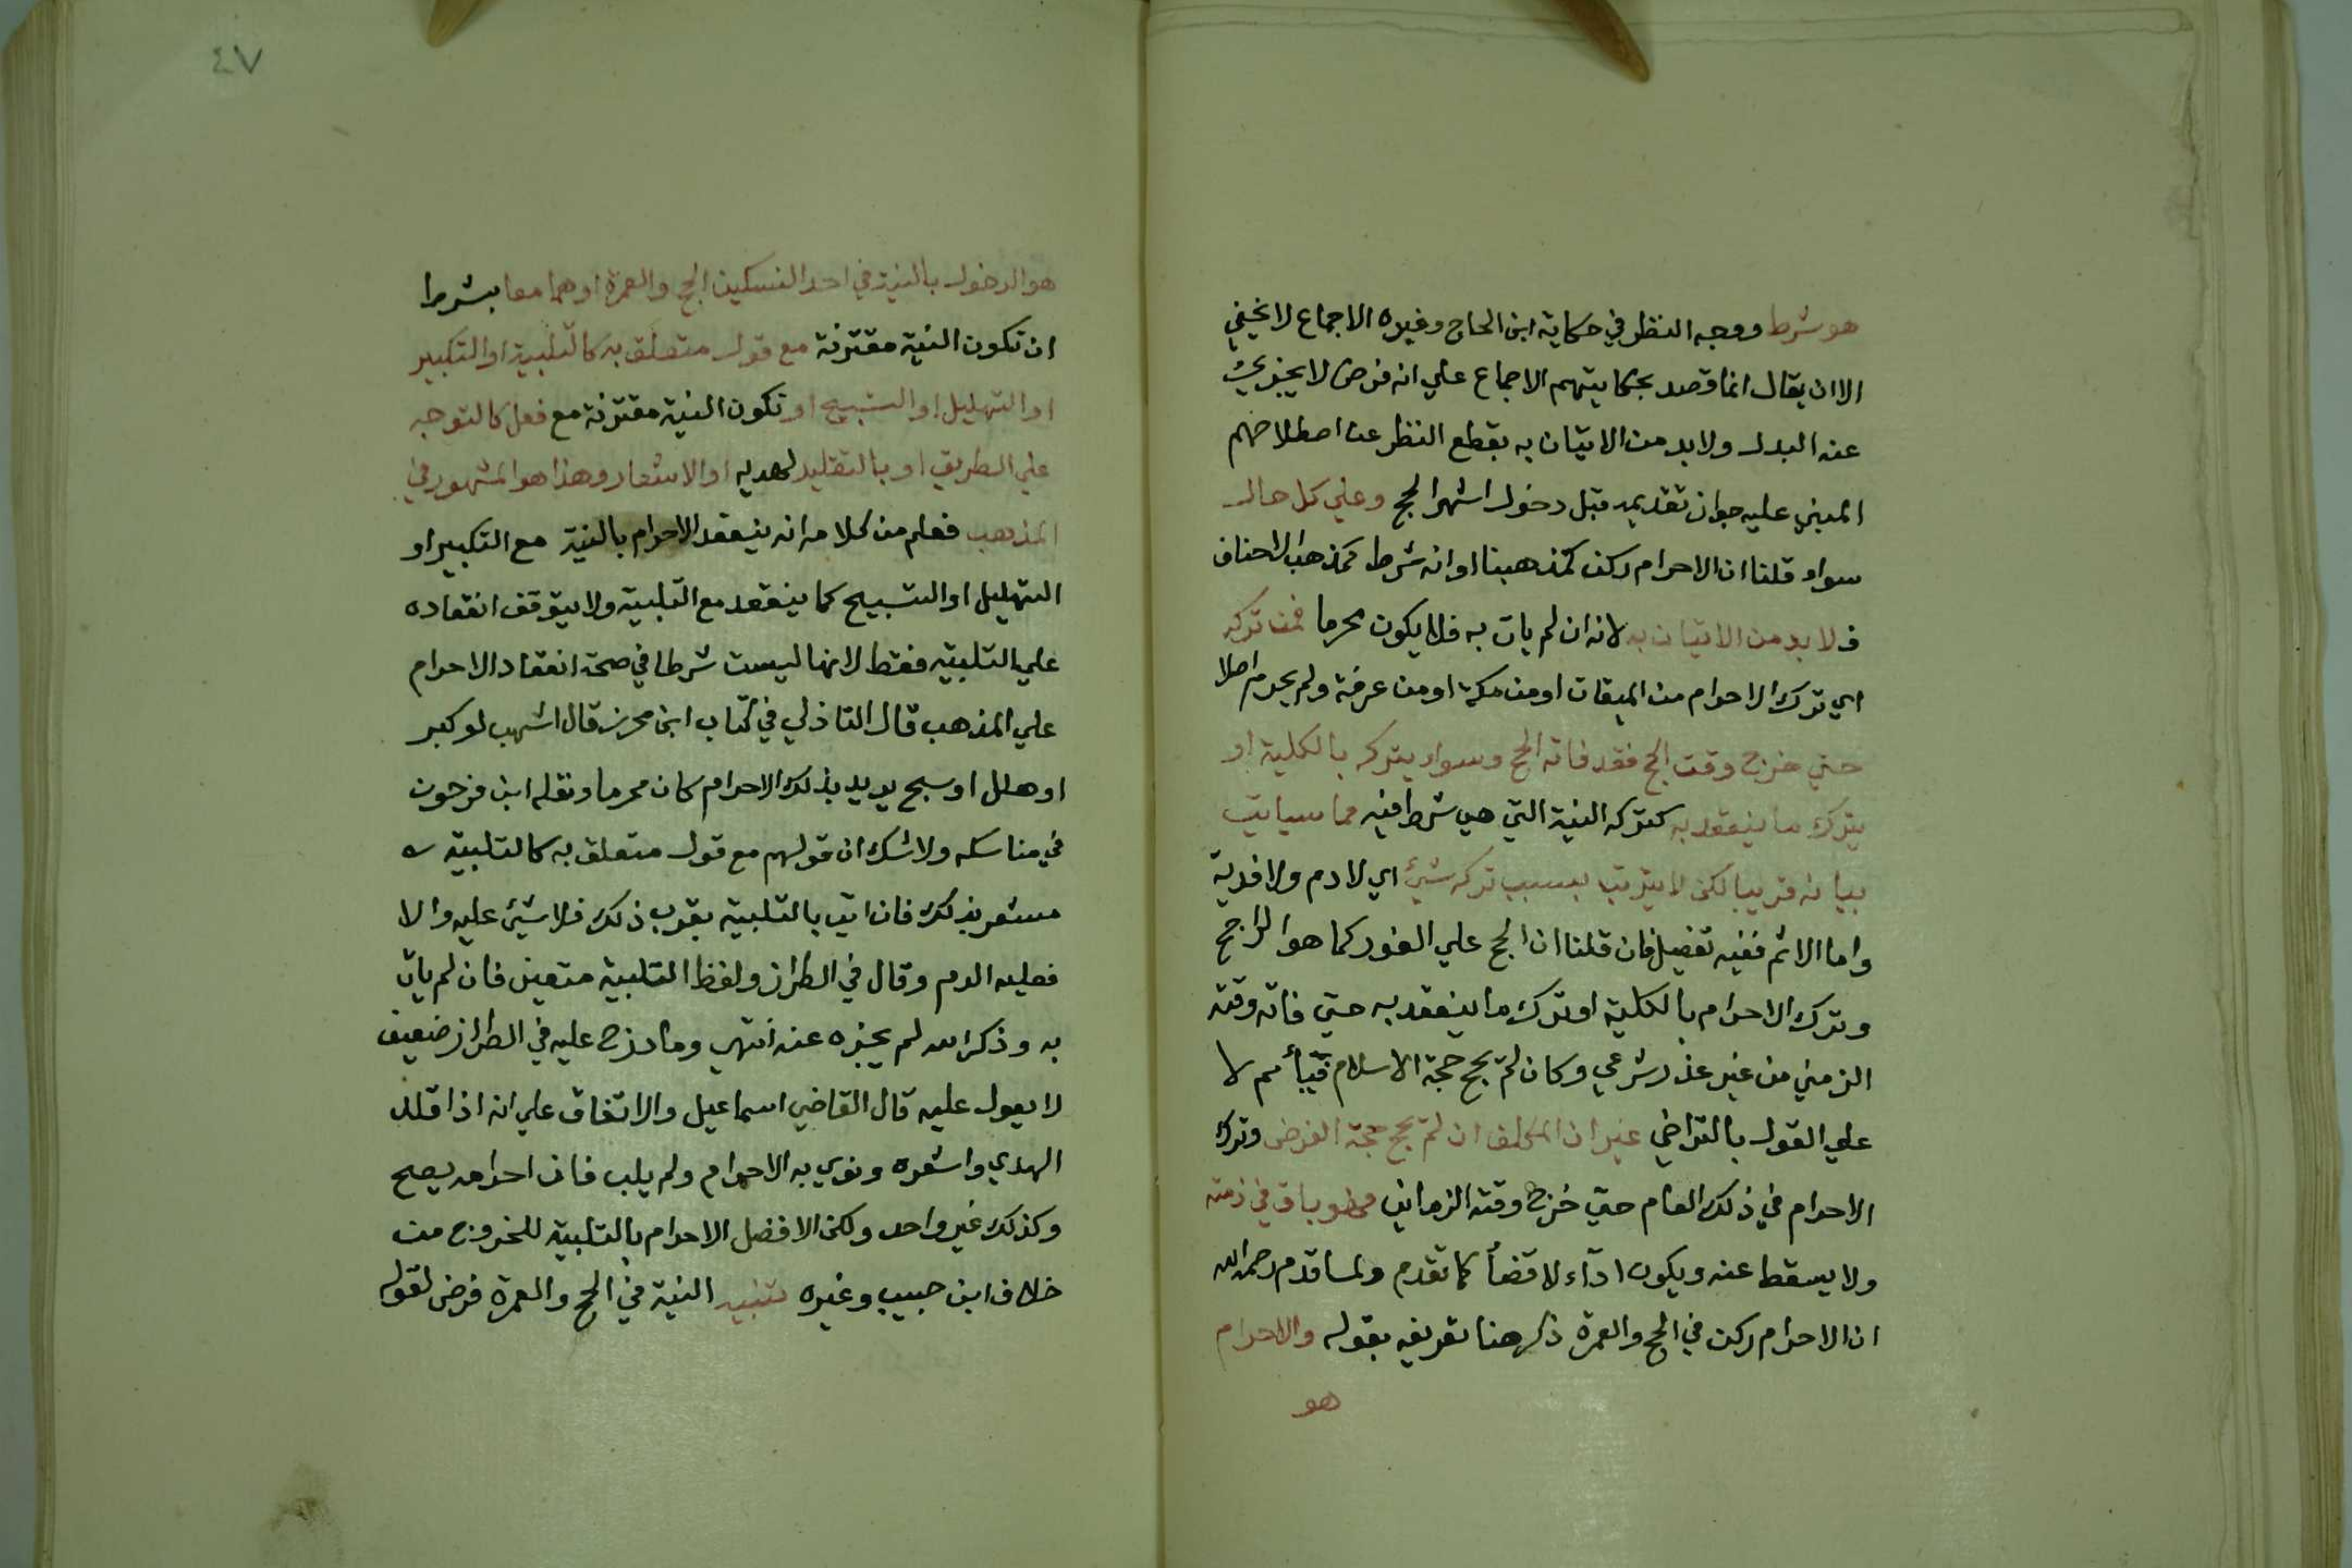 هو شرط ووجه النظر في حكاية ابن الحاج وغيره الاجماع لا يخفي
الا ان يقال انما قصد بحكايتهم الاجماع علي انه فرض لا يجزيئ
عنه البدل ولا بد من الاتيان به بقطع النظر عن اصطلاحهم
المبني عليه جواز تقديمه قبل دخول اشهر الحج وعلي كل حال
سواء قلنا ان الاحرام ركن كمذهبنا او انه شرط كمذهب الاحناف
فلا بد من الاتيان به لانه ان لم يات به فلا يكون محرما فمن تركه
اي ترك الاحرام من الميقات او من مكة او من عرفة ولم يحرم اصلا
حتي خرج وقت الحج فقد فاته الحج وسواء بتركه بالكلية او
بترك ما ينعقد به كتركه النية التي هي شرط فيه مما سياتي
بيانه قريبا لكن لا يترتب بسبب تركه شيئ اي لا دم ولا فدية
واما الاثم ففيه تفصيل فان قلنا ان الحج علي الفور كما هو الراجح
وترك الاحرام بالكلية او ترك ما ينعقد به حتي فاته وقته
الزمني من غير عذر شرعي وكان لم يحج حجة الاسلام فيأثم لا
علي القول بالتراخي غير ان المكلف ان لم يحج حجة الفرض وترك
الاحرام في ذلك العام حتي خرج وقته الزماني فهو باق في ذمته
ولا يسقط عنه ويكون اداء لا قضأ كما تقدم ولما قدم رحمه الله
ان الاحرام ركن في الحج والعمرة ذكر هنا تعريفه بقوله والاحرام
هو
٤٧
هو الدخول بالنية في احد النسكين الحج والعمرة او هما معا بشرط
ان تكون النية مقترنة مع قول متعلق به كالتلبية او التكبير
او التهليل او التسبيح او تكون النية مقترنة مع فعل كالتوجه
علي الطريق او بالتقليد لهديه او الاشعار وهذا هو المشهور في
المذهب فعلم من كلامه انه ينعقد الاحرام بالنية مع التكبير او
التهليل او التسبيح كما ينعقد مع التلبية ولا يتوقف انعقاده
علي التلبية فقط لانها ليست شرطا في صحة انعقاد الاحرام
علي المذهب قال التاذلي في كتاب ابن محرز قال اشهب لو كبر
او هلل او سبح يريد بذلك الاحرام كان محرما ونقله ابن فرحون
في مناسكه ولا شك ان قولهم مع قول متعلق به كالتلبية
مشعر بذلك فان اتي بالتلبية بقرب ذلك فلا شيئ عليه والا
فعليه الدم وقال في الطراز ولفظ التلبية متعين فان لم يات
به وذكر الله لم يجزه عنه انتهي وما درج عليه في الطراز ضعيف
لا يعول عليه قال القاضي اسماعيل والاتفاق علي انه اذا قلد
الهدي واشعره ونوي به الاحرام ولم يلب فان احرامه يصح
وكذلك غير واحد ولكن الافضل الاحرام بالتلبية للخروج من
خلاف ابن حبيب وغيره تنبيه النية في الحج والعمرة فرض لقوله